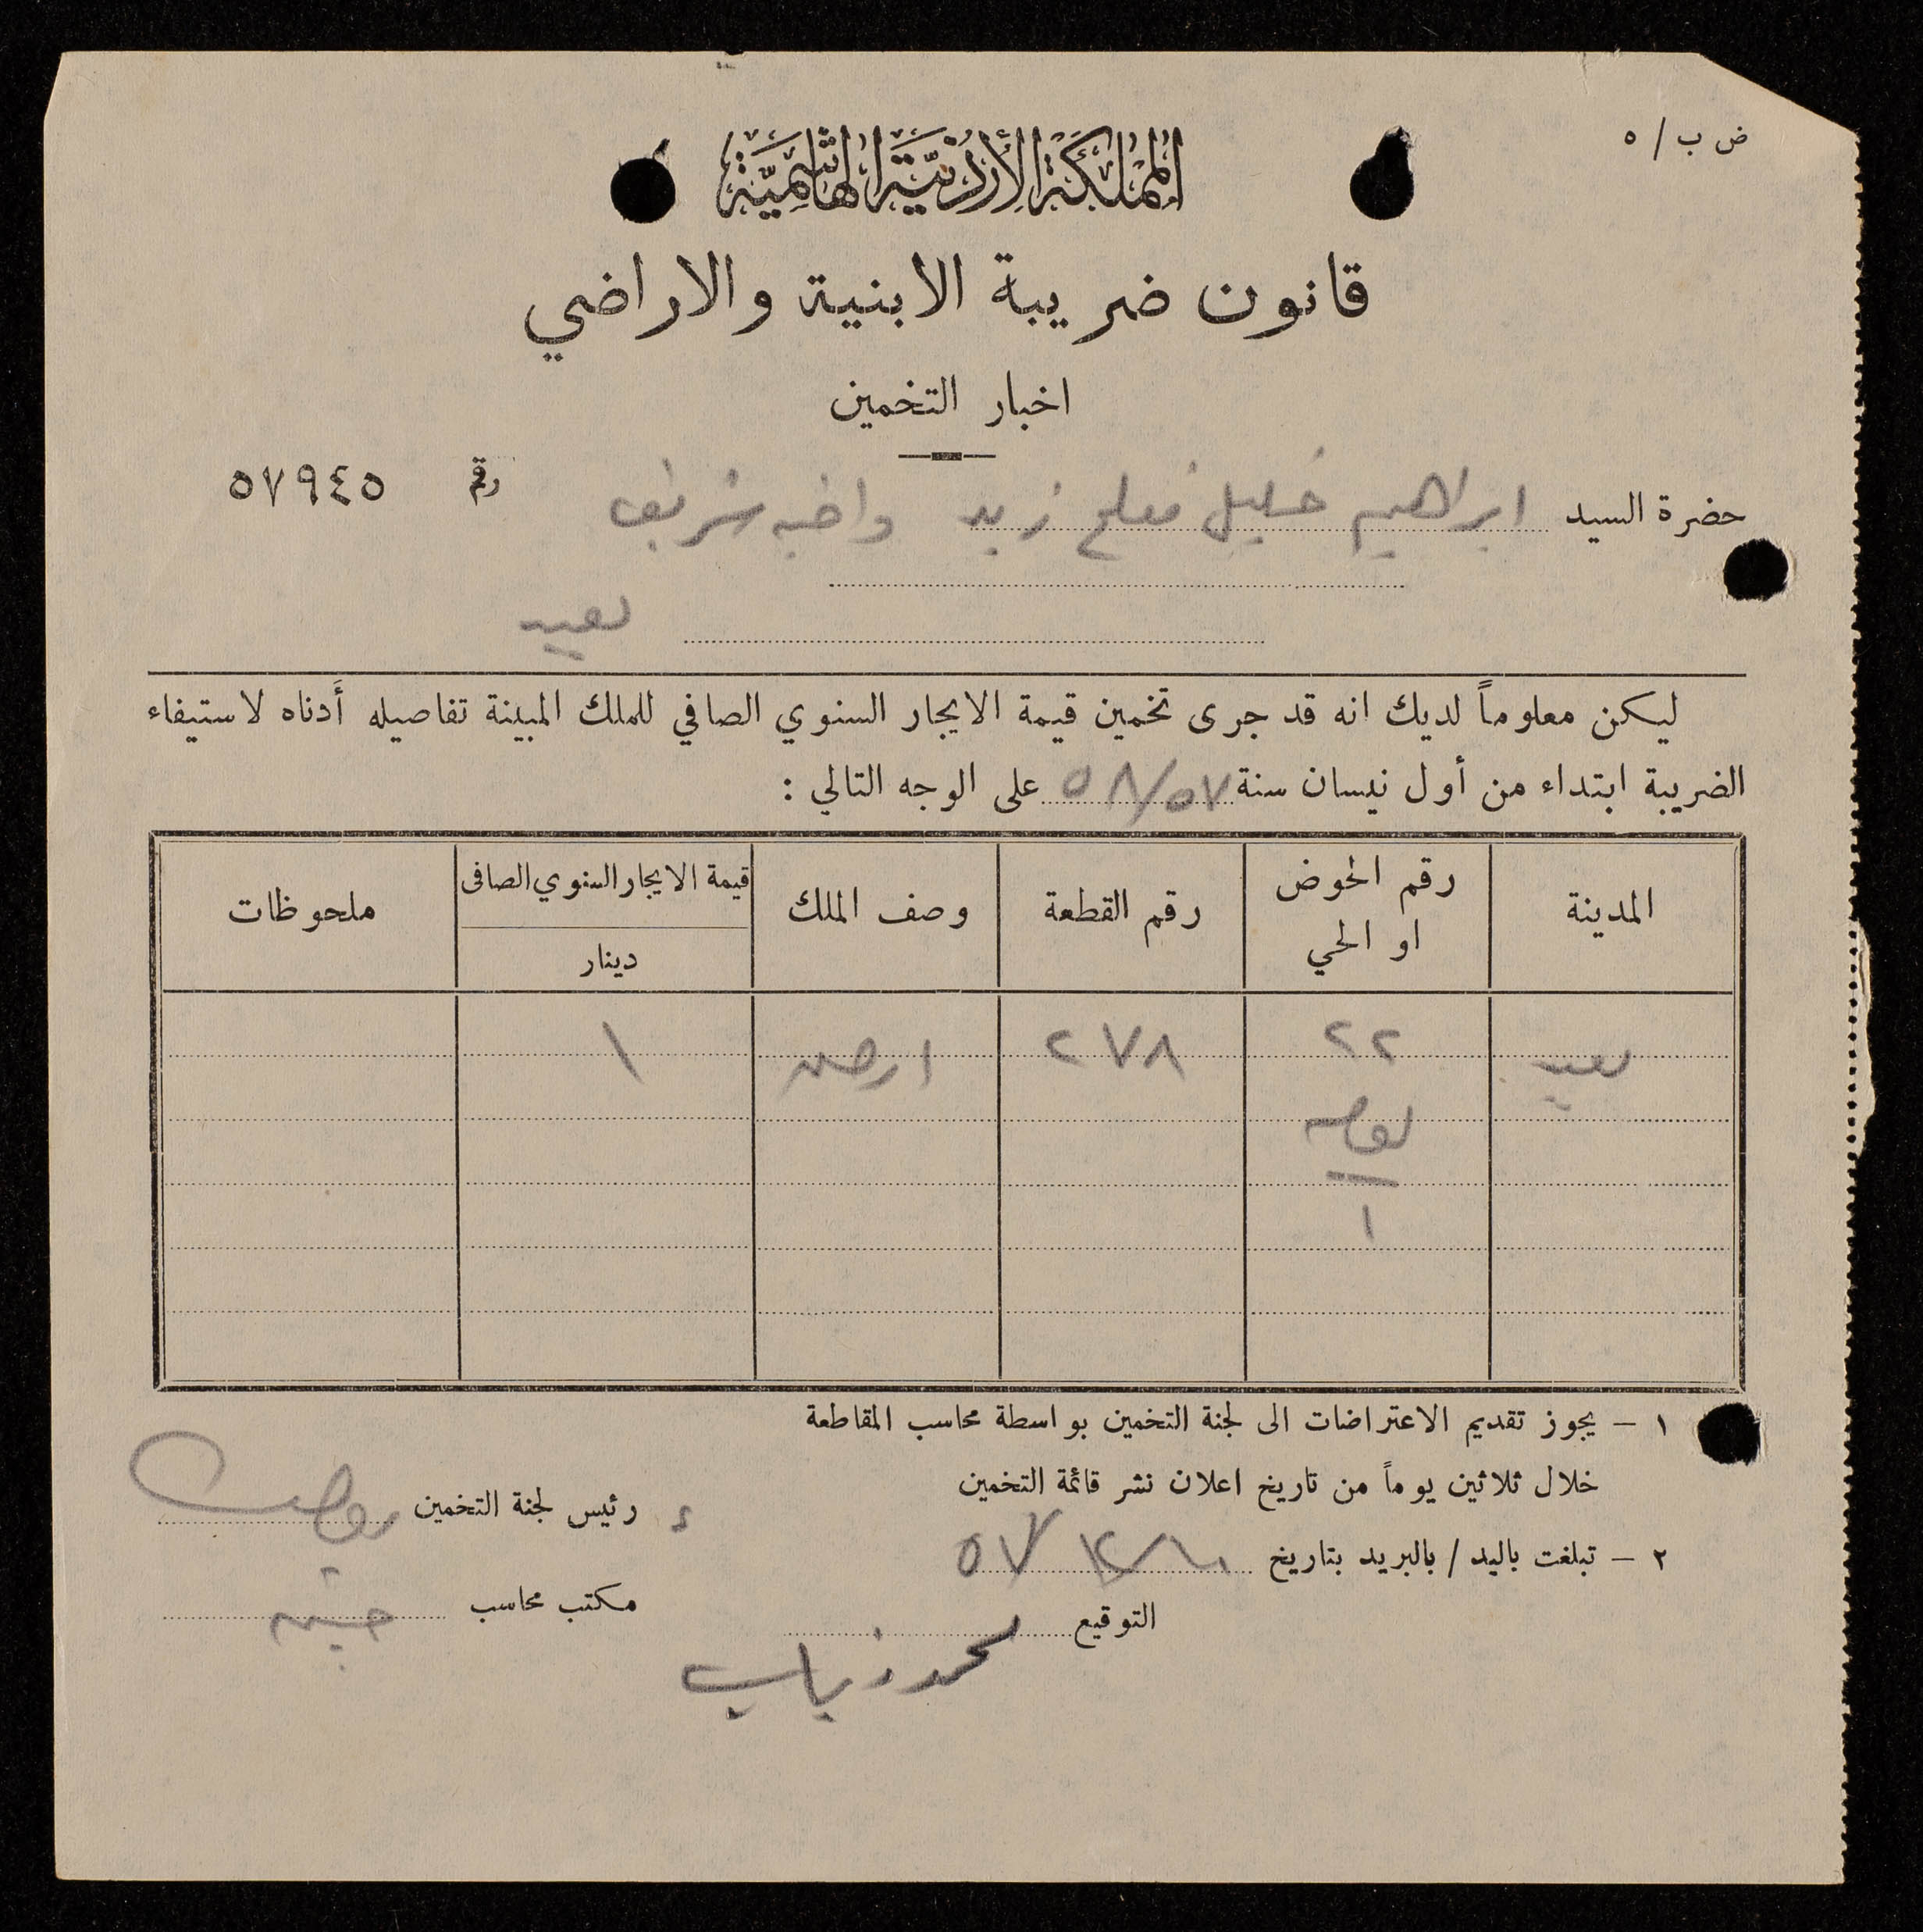 ض ب / ٥
المملكة الأردنية الهاشمية
قانون ضريبة الابنية والاراضي
اخبار التخمين
رقم ٥٧٩٤٥
حضرة السيد ابراهيم خليل مفلح زيد واخيه شريف
يعبد
ليكن معلوماً لديك انه قد جرى تخمين قيمة الايجار السنوي الصافي للملك المبينة تفاصيله أدناه لاستيفاء
الضريبة ابتداء من أول نيسان سنة ٥٨/٥٧ على الوجه التالي :
المدينة رقم الحوض او الحي رقم القطعة وصف الملك قيمة الايجار السنوي الصافي دينار ملحوظات
يعبد ٢٢ ٢٧٨ ارض ١
١
١ - يجوز تقديم الاعتراضات الى لجنة التخمين بواسطة محاسب المقاطعة
خلال ثلاثين يوماً من تاريخ اعلان نشر قائمة التخمين
رئيس لجنة التخمين
٢ - تبلغت باليد / بالبريد بتاريخ
مكتب محاسب جنين
التوقيع محمد ذياب